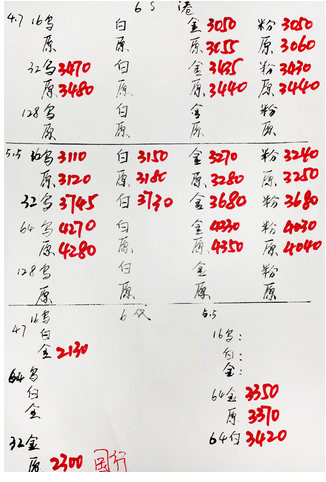 6S 港
4.7 16乌 白 金3050 粉3050
原 原 原3055 原3060
32乌3470 白 金3435 粉3430
原3480 原 原3440 原3440
128乌 白 金 粉
原 原 原 原
5.5 16乌3110 白3150 金3270 粉3240
原3120 原3180 原3280 原3250
32乌3745 白3730 金3680 粉3680
64乌4270 白 金4330 粉4030
原4280 原 原4350 原4040
128乌 白 金 粉
原 原 原 原
16乌 6 5.5
4.7 白 16乌:
金2130 白:
金:
64乌 64金3350
白 原3370
金 64白3420
32金
原2300 国行